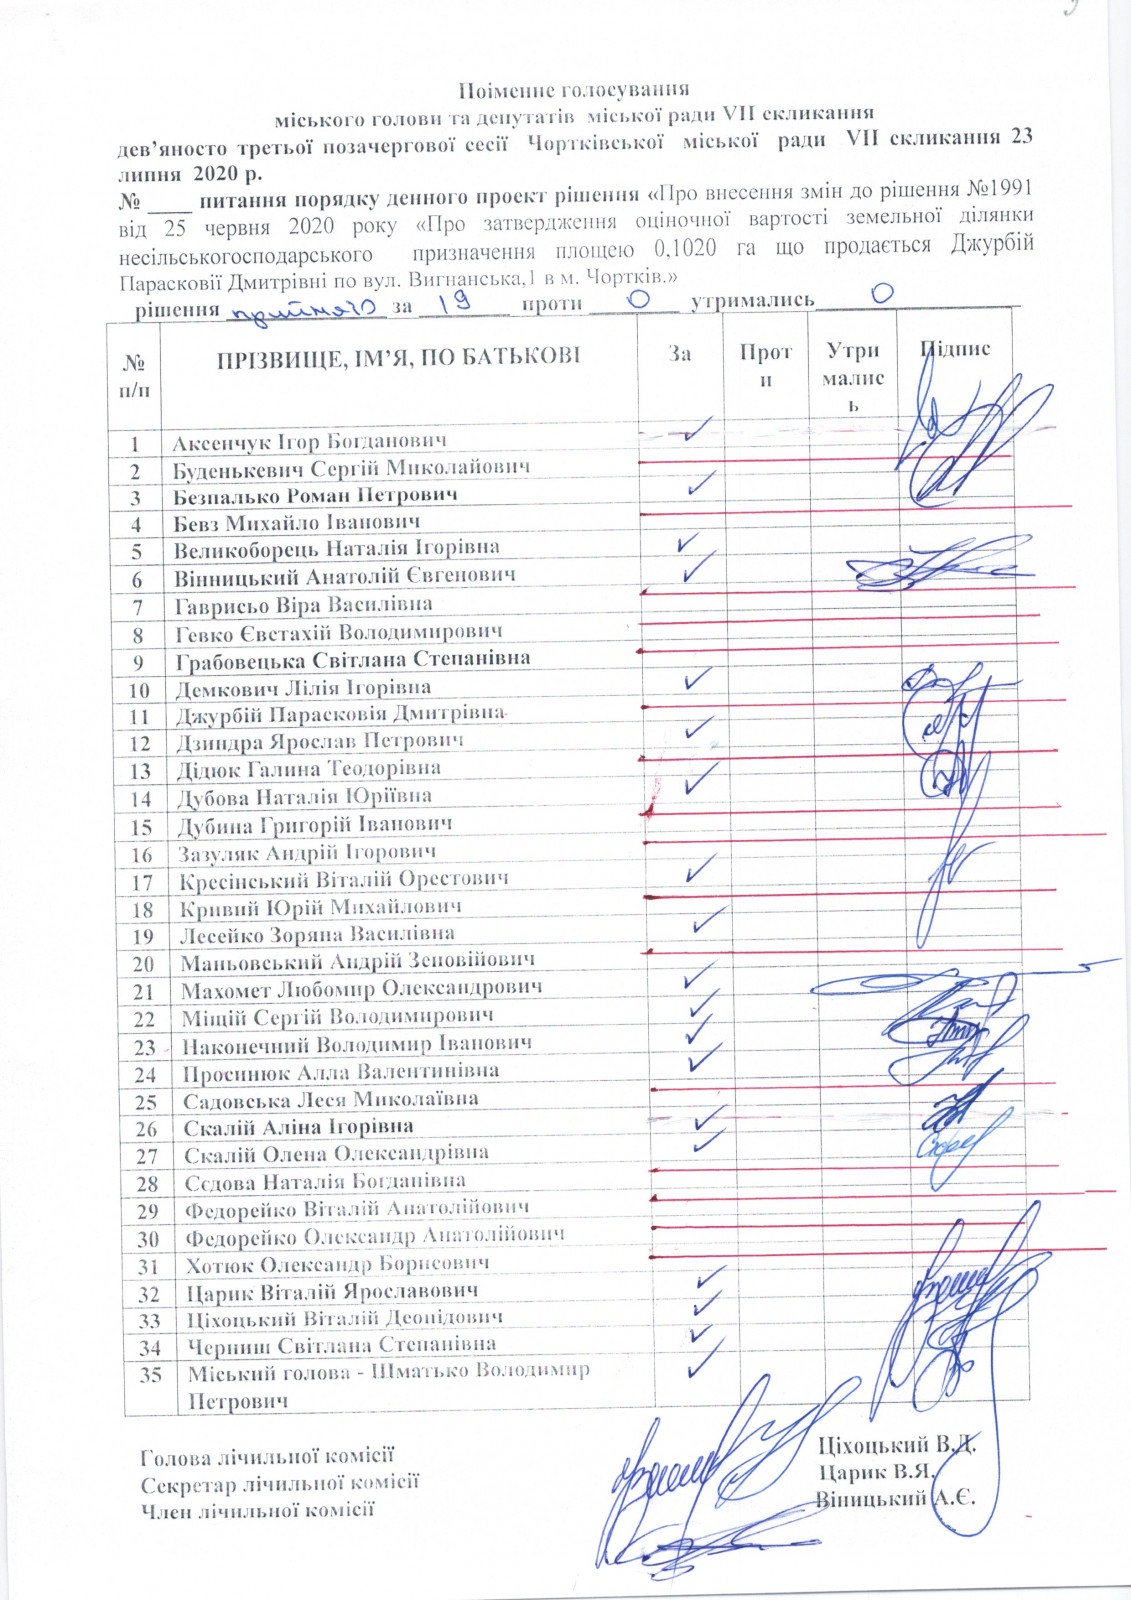 Поіменне голосування
міського голови та депутатів міської ради VII скликання
дев’яносто третьої позачергової сесії Чортківської міської ради VII скликання 23
липня 2020 р.
№ ____ питання порядку денного проект рішення «Про внесення змін до рішення №1991
від 25 червня 2020 року «Про затвердження оціночної вартості земельної ділянки
несільськогосподарського призначення площею 0,1020 га що продається Джурбій
Парасковії Дмитрівні по вул. Вигнанська,1 в м. Чортків.»
рішення прийнято за 19 проти 0 утримались 0
№ п/п ПРІЗВИЩЕ, ІМ’Я, ПО БАТЬКОВІ За Проти Утрималис ь Підпис
1 Аксенчук Ігор Богданович ✓
2 Буденькевич Сергій Миколайович
3 Безпалько Роман Петрович ✓
4 Бевз Михайло Іванович
5 Великоборець Наталія Ігорівна ✓
6 Вінницький Анатолій Євгенович ✓
7 Гаврисьо Віра Василівна
8 Гевко Євстахій Володимирович
9 Грабовецька Світлана Степанівна
10 Демкович Лілія Ігорівна ✓
11 Джурбій Парасковія Дмитрівна
12 Дзиндра Ярослав Петрович ✓
13 Дідюк Галина Теодорівна
14 Дубова Наталія Юріївна ✓
15 Дубина Григорій Іванович
16 Зазуляк Андрій Ігорович
17 Кресінський Віталій Орестович ✓
18 Кривий Юрій Михайлович
19 Лесейко Зоряна Василівна ✓
20 Маньовський Андрій Зеновійович
21 Махомет Любомир Олександрович ✓
22 Міщій Сергій Володимирович ✓
23 Наконечний Володимир Іванович ✓
24 Просинюк Алла Валентинівна ✓
25 Садовська Леся Миколаївна
26 Скалій Аліна Ігорівна ✓
27 Скалій Олена Олександрівна ✓
28 Сєдова Наталія Богданівна
29 Федорейко Віталій Анатолійович
30 Федорейко Олександр Анатолійович
31 Хотюк Олександр Борисович
32 Царик Віталій Ярославович ✓
33 Ціхоцький Віталій Леонідович ✓
34 Черниш Світлана Степанівна ✓
35 Міський голова - Шматько Володимир ✓
Петрович
Голова лічильної комісії Ціхоцький В.Л.
Секретар лічильної комісії Царик В.Я.
Член лічильної комісії Віницький А.Є.